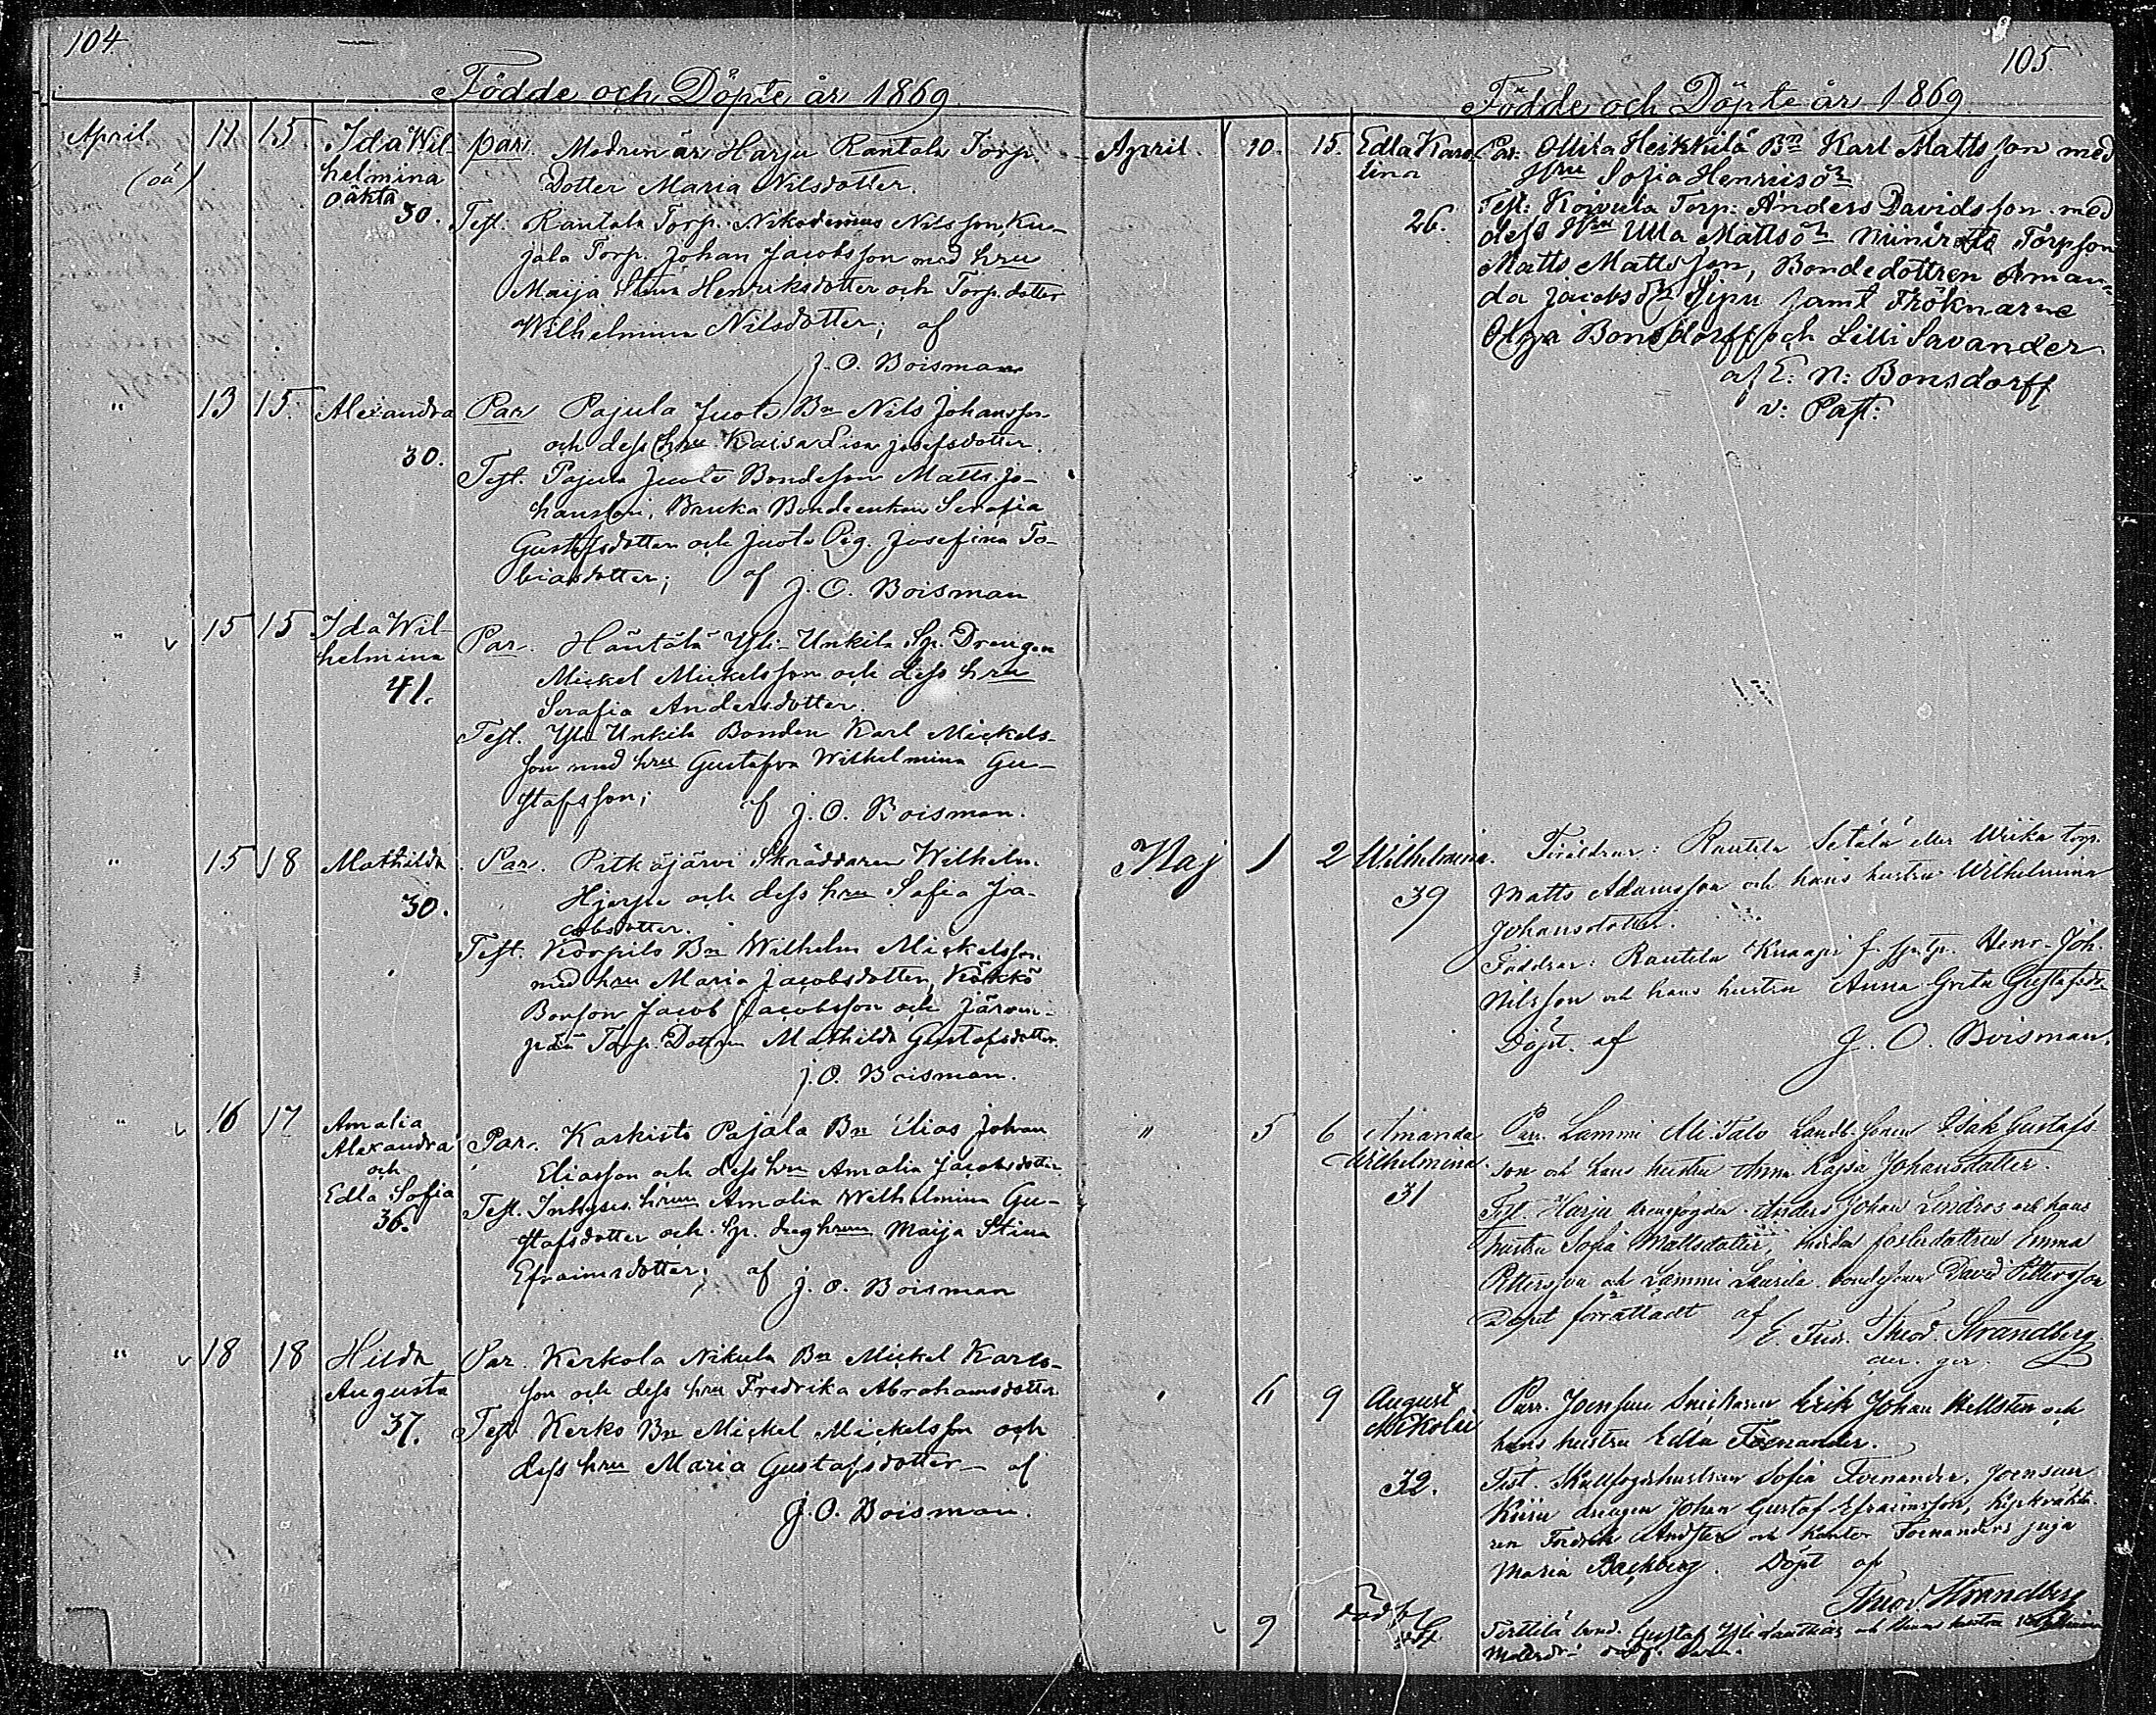 104
Födde och Döpte år 1869.
April 11 15 Ida Wil-
helmina
oäkta
(oä)
30.
Par. Modren är Harju Rantala Torp.
Dotter Maria Nilsdotter.
Test. Rantala Torp. Nikodemus Nilsson, Ku-
jala Torp. Johan Jacobsson med hru
Maija Stina Henriksdotter och Torp. dotter
Wilhelmina Nilsdotter; af
J. O. Boisman
" 13 15. Alexandra
30.
Par Pajula Juots Bn Nils Johansson
och dess hru Kaisa Lisa Josefsdotter.
Test. Pajula Juots Bondeson Matts Jo-
hansson, Bruka Bondeenkan Serafia
Gustafsdotter och Juots Pig. Josefina To-
biasdotter; af J. O. Boisman
" v 15 15 Ida Wil-
helmina
41.
Par. Häntälä Yli-Unkila Sp. Drengen
Mickel Mickelsson och dess hru
Serafia Andersdotter.
Test. Yli Unkila Bonden Karl Mickels-
son med hru Gustafva Wilhelmina Gu-
stafsson; af J. O. Boisman.
" 15 18 Mathilda
30.
Par. Pitkäjärvi Skräddaren Wilhelm
Hjerpe och dess hru Sofia Ja-
cobsdotter.
Test. Korpils Bn Wilhelm Mickelsson
med hru Maria Jacobsdotter, Kökkö
Bonson Jacob Jacobsson och Järven-
pää Torp. Dottren Mathilda Gustafsdotter.
J. O. Boisman.
" v 16 17 Amalia
Alexandra
och
Edla Sofia
36.
Par. Kaskisto Pajala Bn Elias Johan
Eliasson och dess hru Amalia Jacobsdotter
Test. Inhyses hrun Amalia Wilhelmina Gu-
stafsdotter och Sp. drg hrun Maija Stina
Efraimsdotter; af J. O. Boisman
" v 18 18 Hilda
Augusta
37.
Par. Kerkola Nikula Bn Mickel Karls-
son och dess hru Fredrika Abrahamsdotter
Test Kerko Bn Mickel Mickelsson och
dess hru Maria Gustafsdotter – af
J. O. Boisman.
105.
Födde och Döpte år 1869
April. 10. 15. Edla Karo-
lina
26.
Par: Ollila Heikkilä Bn Karl Mattsson med
Hru Sofia Henrics dr
Test: Koivula Torp: Anders Davidsson med
dess Hru Ulla Matts dr Torpson
Matts Mattsson, Bondedottren Aman-
da Jacobs dr Sipu samt Fröknarne
Olga Bonsdorff och Lilli Savander
af E: N: Bonsdorff
v: Past:
Maj 1 2 Wilhelmina.
39
Föräldrar: Rautela Setälä eller Wiika torp.
Matts Adamsson och hans hustru Wilhelmina
Johansdotter.
Faddrar: Rautela Knaapi f. Henr. Joh.
Nilsson och hans hustru Anna Greta Gustafsdr
Döpt. af J. O. Boisman.
" 5 6 Amanda
Wilhelmina.
31
Par. Lammi Ali-Talo Landb. sonen Isak Gustafs-
son och hans hustru Anna Kajsa Johansdotter.
Test. Harju drengfogden Anders Johan Lindros och hans
hustru Sofia Mattsdotter, fosterdottren Emma
Pettersson och Lammi Laurila bondsonen David Pettersson
Döpet förrättadt af E. Theod. Strandberg.
" 6 9 August
Nikolai
32.
Parr. Joensuu Snickaren Erik Johan Hellsten och
hans hustru Edla Foenander.
Test. hustrun Sofia Foenander, Joensuu
Kiisu drengen Johan Gustaf Efraimsson, Kyrkväkta-
ren Fredrik och Kantor Foenanders piga
Maria Backberg. Döpt af
Theod Strandberg
v 9 dödf.
Gustaf och hustru